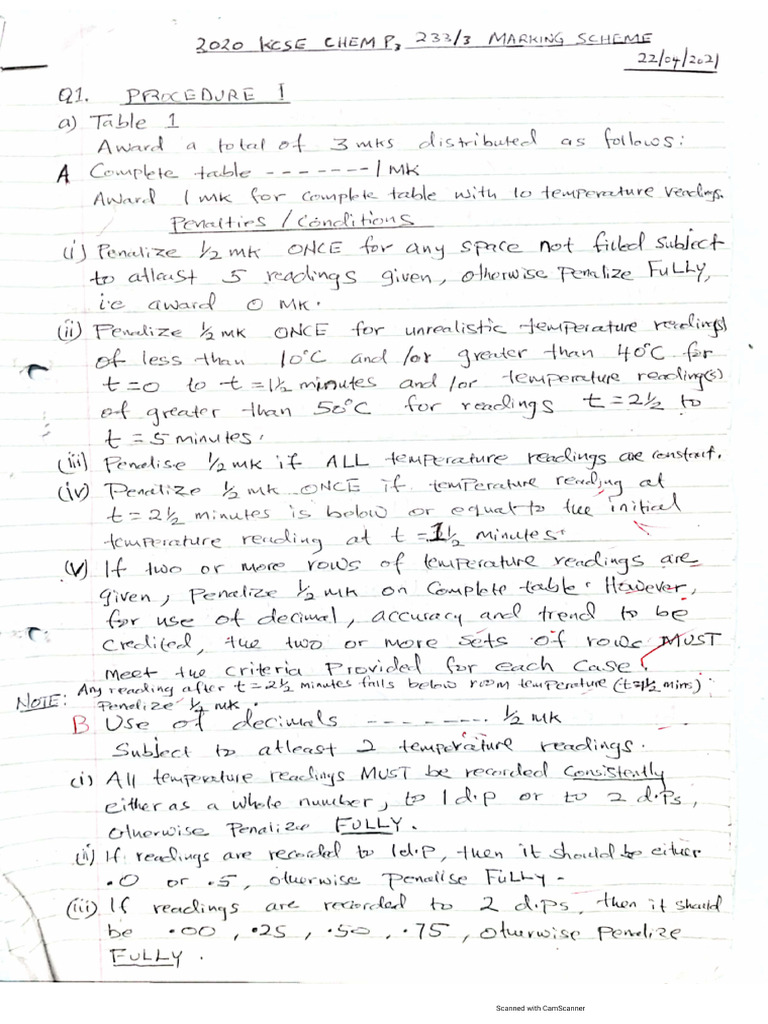 2020 KCSE CHEM P3 233/3 MARKING SCHEME
22/04/2021
Q1. PROCEDURE I
a) Table 1
Award a total of 3 mks distributed as follows:
A Complete table ------- 1 MK
Award 1 MK for complete table with 10 temperature readings.
Penalties / Conditions
(i) Penalize 1/2 mk ONCE for any space not filled subject
to atleast 5 readings given, otherwise Penalize FULLY,
i.e award 0 MK.
(ii) Penalize 1/2 mk ONCE for unrealistic temperature reading(s)
of less than 10°C and /or greater than 40°C for
t=0 to t=1 1/2 minutes and /or temperature reading(s)
of greater than 50°C for readings t=2 1/2 to
t = 5 minutes.
(iii) Penalise 1/2 mk if ALL temperature readings are constant.
(iv) Penalize 1/2 mk ONCE if temperature reading at
t=2 1/2 minutes is below or equal to the initial
temperature reading at t=1 1/2 minutes.
(v) If two or more rows of temperature readings are
given, Penalize 1/2 mk on Complete table. However,
for use of decimal, accuracy and trend to be
credited, the two or more sets of rows MUST
meet the criteria Provided for each case.
NOTE: Any reading after t=2 1/2 minutes falls below room temperature (t=1 1/2 mins)
Penalize 1/2 mk.
B Use of decimals -------- 1/2 mk
Subject to atleast 2 temperature readings.
(i) All temperature readings MUST be recorded Consistently
either as a whole number, to 1 d.p or to 2 d.Ps,
otherwise Penalize FULLY.
(ii) If readings are recorded to 1d.P, then it should be either
.0 or .5, otherwise Penalise FULLY.
(iii) If readings are recorded to 2 d.ps, then it should
be .00, .25, .50, .75, otherwise Penalize
FULLY.
Scanned with CamScanner